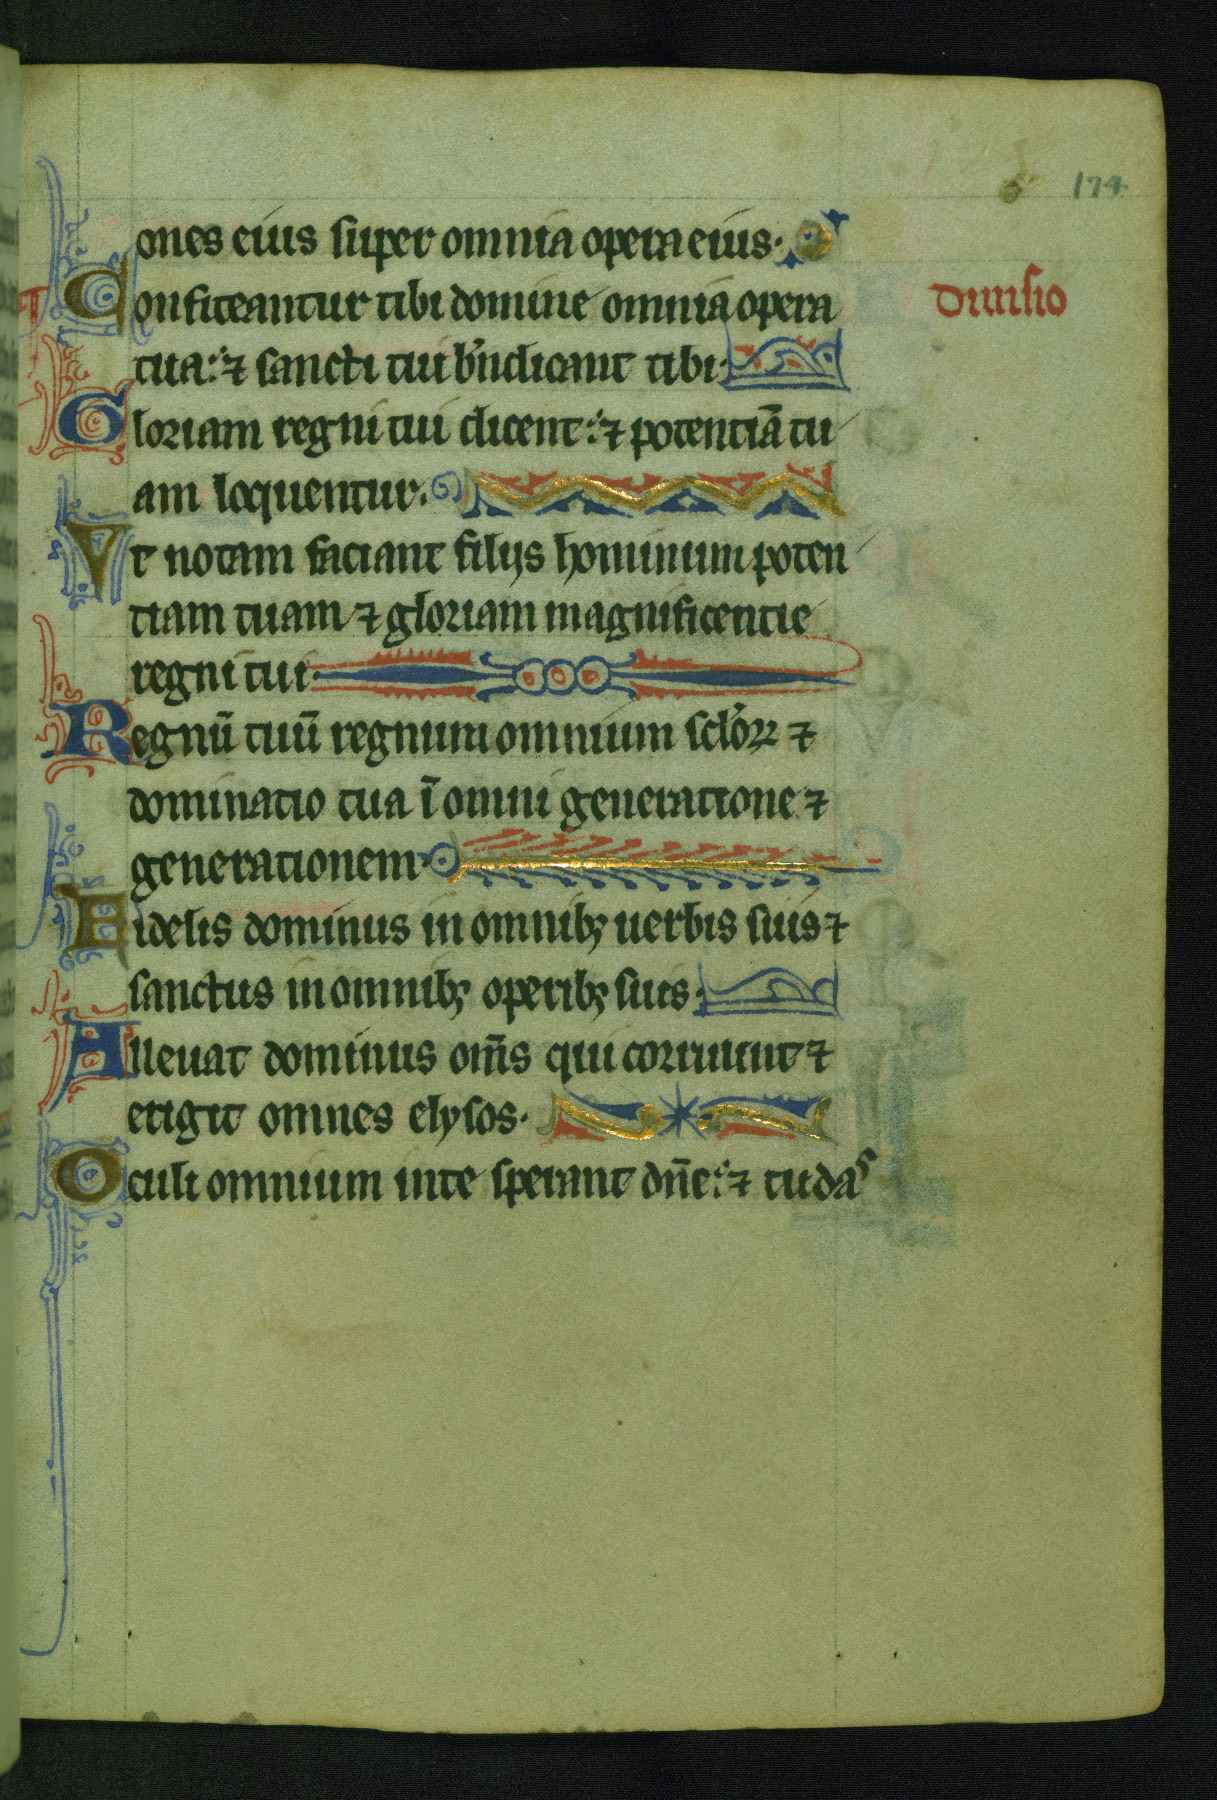 174
ones eius super omnia opera eius.
Confiteantur tibi domine omnia opera
diuisio
tua: ⁊ sancti tui b̄ndicant tibi.
Gloriam regni tui dicent: ⁊ potentiā tu
am loquentur.
Vt notam faciant filijs hominum poten
tiam tuam ⁊ gloriam magnificentie
regni tui.
Regnū tuū regnum omnium sc̄loꝝ ⁊
dominatio tua ī omni generatione ⁊
generationem.
Fidelis dominus in omnibꝫ uerbis suis ⁊
sanctus in omnibꝫ operibꝫ suis.
Alleuat dominus om̄s qui corruunt ⁊
erigit omnes elysos.
Oculi omnium in te sperant dn̄e: ⁊ tu das